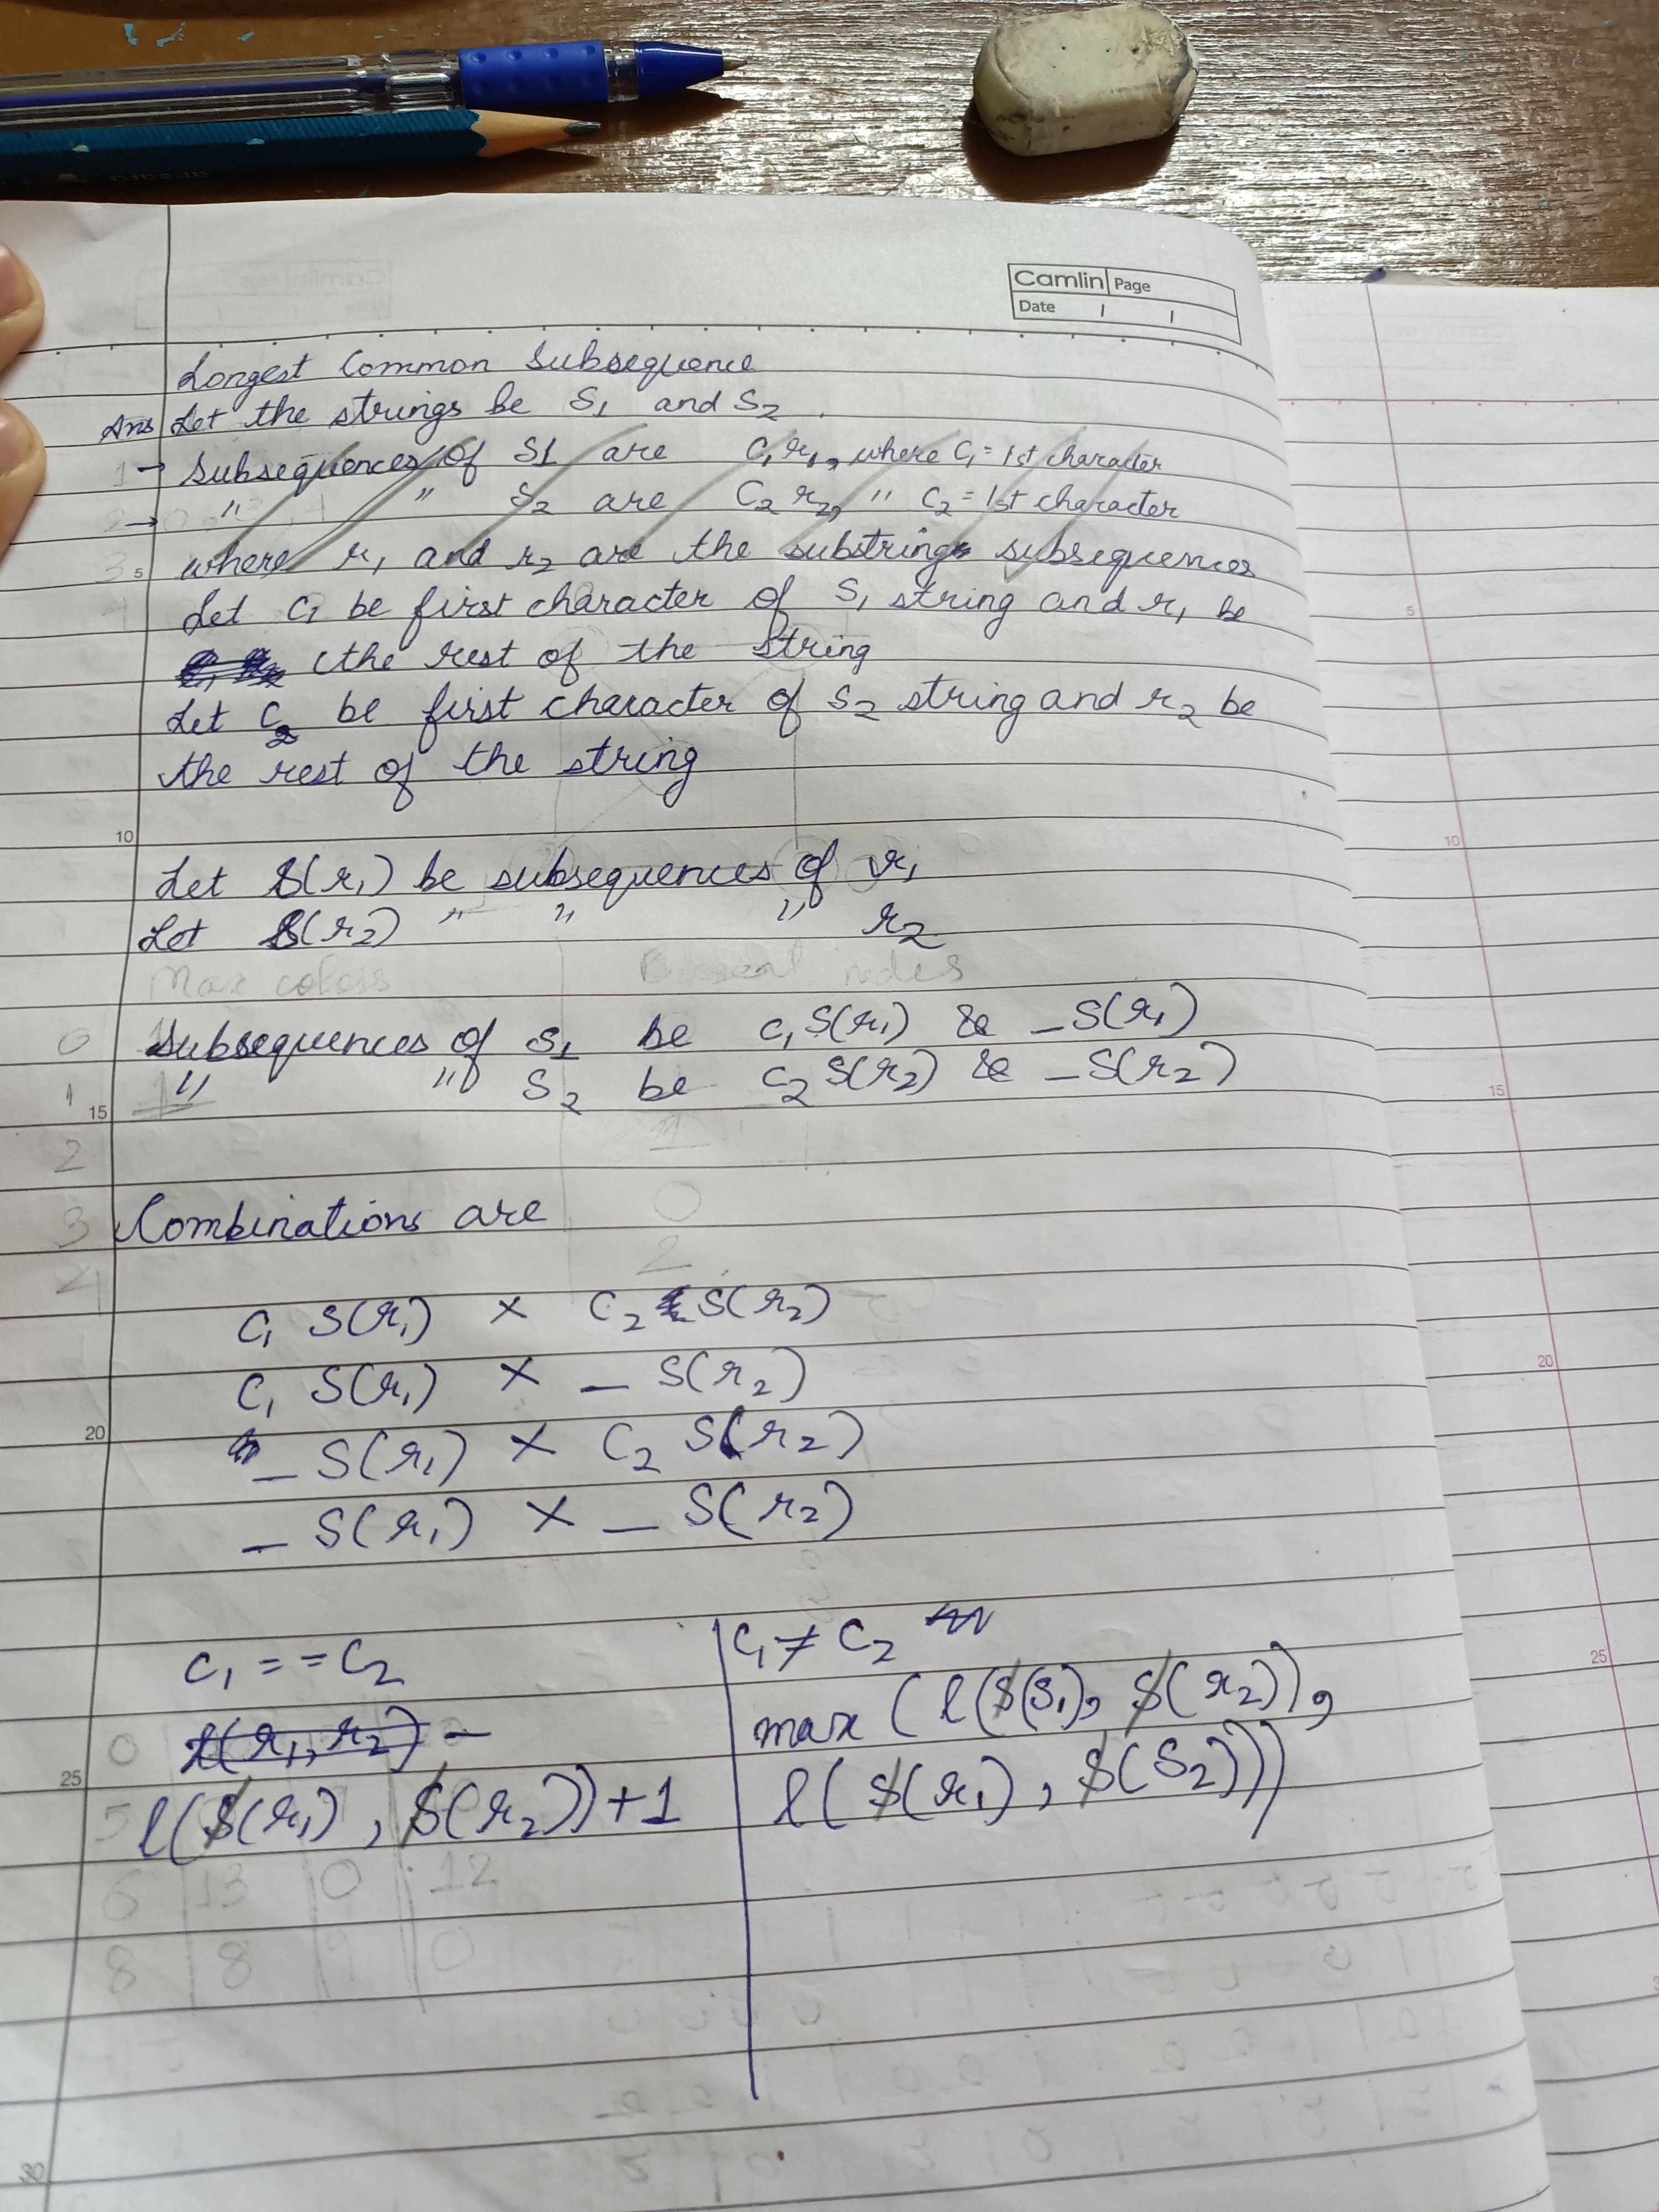 apsara
Camlin Page
Date / /
Longest Common Subsequence
Ans Let the strings be S₁ and S₂.
1→ Subsequences of S1 are C₁ r₁, where C₁ = 1st character
→ " " S₂ are C₂ r₂, " C₂ = 1st character
where r₁ and r₂ are the substrings subsequences
Let C₁ be first character of S₁ string and r₁ be
the rest of the string
Let C₂ be first character of S₂ string and r₂ be
the rest of the string
Let S(r₁) be subsequences of r₁
Let S(r₂) " " " r₂
Subsequences of S₁ be C₁ S(r₁) & _S(r₁)
" " S₂ be C₂ S(r₂) & _S(r₂)
Combinations are
C₁ S(r₁) × C₂ S(r₂)
C₁ S(r₁) × _ S(r₂)
_ S(r₁) × C₂ S(r₂)
_ S(r₁) × _ S(r₂)
C₁ == C₂
l(r₁, r₂) –
l(S(r₁), S(r₂))+1
C₁ ≠ C₂
max (l(S(S₁), S(r₂)),
l(S(r₁), S(S₂)))
5
10
15
20
25
30
5
10
15
20
25